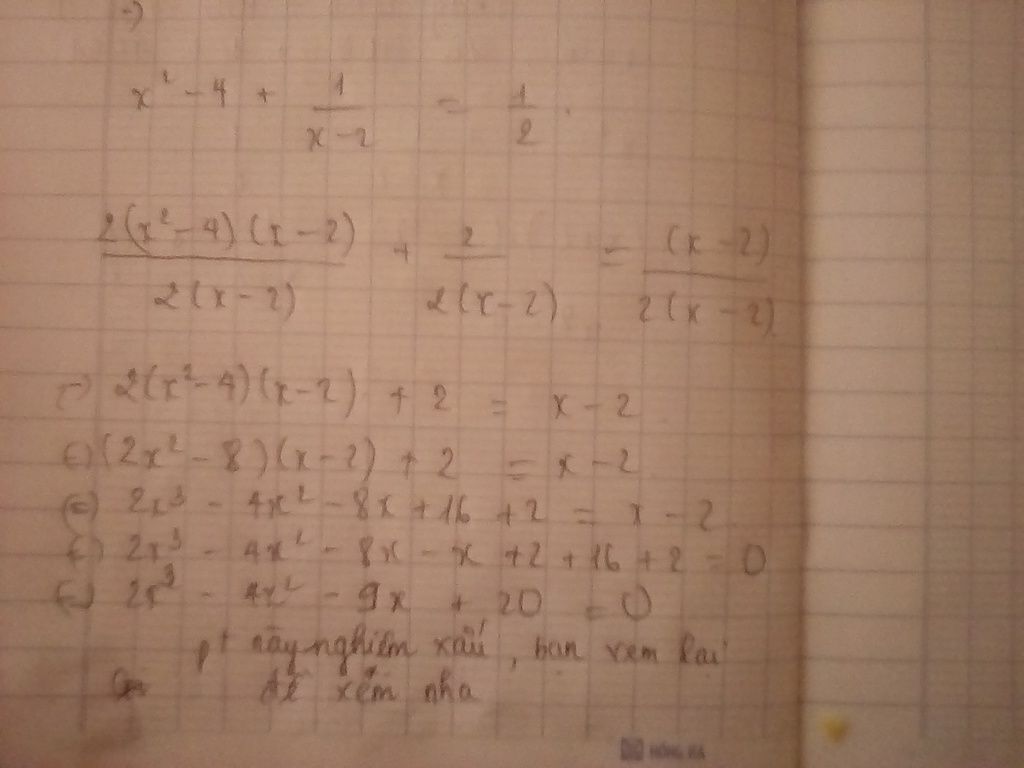 x² - 4 + 1/(x-2) = 1/2.
2(x² - 4)(x - 2)/2(x - 2) + 2/2(x - 2) = (x - 2)/2(x - 2)
2(x² - 4)(x - 2) + 2 = x - 2
(2x² - 8)(x - 2) + 2 = x - 2
2x³ - 4x² - 8x + 16 + 2 = x - 2
2x³ - 4x² - 8x - x + 2 + 16 + 2 = 0
2x³ - 4x² - 9x + 20 = 0
pt này nghiệm xấu, bạn xem lại
đề xem nha